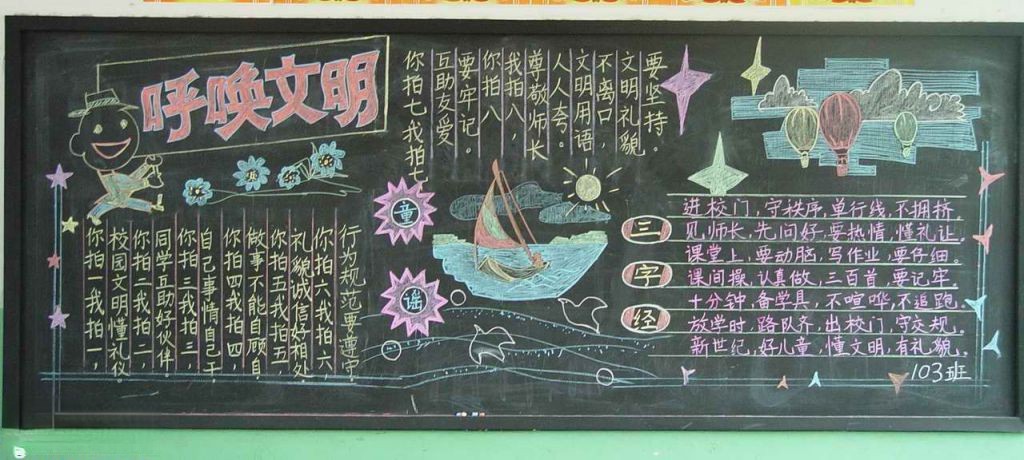 呼唤文明
你拍一我拍一,
校园文明懂礼仪。
你拍二我拍二,
同学互助好伙伴
你拍三我拍三,
自己事情自己干,
你拍四我拍四,
做事不能自顾自
你拍五我拍五
礼貌诚信好相处
你拍六我拍六
行为规范要遵守
你拍七我拍七
互助友爱
要牢记。
你拍八
我拍八,
尊敬师长
人人夸。
文明用语
不离口,
文明礼貌
要坚持。
童
谣
三
字
经
进校门,守秩序,单行线,不拥挤,
见师长,先问好,要热情,懂礼让。
课堂上,要动脑,写作业,要仔细。
课间操,认真做,三百首,要记牢
十分钟,备学具,不喧哗,不追跑,
放学时,路队齐,出校门,守交规,
新世纪,好儿童,懂文明,有礼貌。
103班